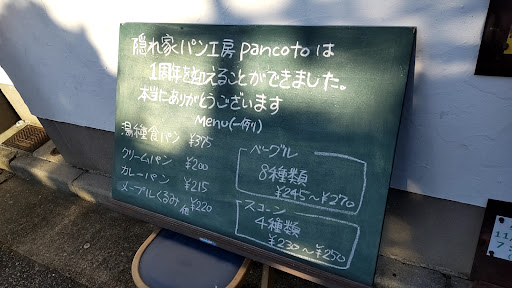 隠れ家パン工房 pancotoは
1周年を迎えることができました。
本当にありがとうございます
Menu(一例)
湯種食パン ¥375
クリームパン ¥200
カレーパン ¥215
メープルくるみ 他 ¥220
ベーグル
8種類
¥245～¥270
スコーン
4種類
¥230～¥250